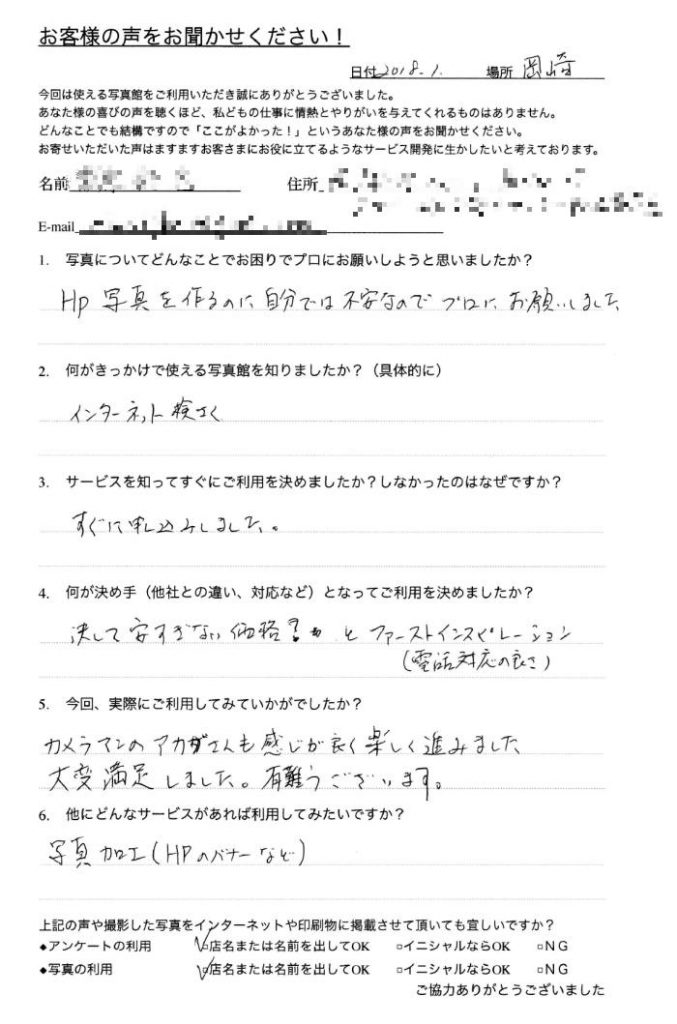 お客様の声をお聞かせください！
日付 2018.1. 場所 岡崎
今回は使える写真館をご利用いただき誠にありがとうございました。
あなた様の喜びの声を聴くほど、私どもの仕事に情熱とやりがいを与えてくれるものはありません。
どんなことでも結構ですので「ここがよかった！」というあなた様の声をお聞かせください。
お寄せいただいた声はますますお客さまにお役に立てるようなサービス開発に生かしたいと考えております。
名前 住所
E-mail
1. 写真についてどんなことでお困りでプロにお願いしようと思いましたか？
Hp 写真を作るのに自分では不安なのでプロにお願いしました
2. 何がきっかけで使える写真館を知りましたか？（具体的に）
インターネット検さく
3. サービスを知ってすぐにご利用を決めましたか？しなかったのはなぜですか？
すぐに申込みしました。
4. 何が決め手（他社との違い、対応など）となってご利用を決めましたか？
決して安すぎない価格? と ファーストインスピレーション
（電話対応の良さ）
5. 今回、実際にご利用してみていかがでしたか？
カメラマンのアカザさんも感じが良く楽しく進みました
大変満足しました。有難うございます。
6. 他にどんなサービスがあれば利用してみたいですか？
写真加工（HPのバナーなど）
上記の声や撮影した写真をインターネットや印刷物に掲載させて頂いても宜しいですか？
◆アンケートの利用 ☑店名または名前を出してOK □イニシャルならOK □NG
◆写真の利用 ☑店名または名前を出してOK □イニシャルならOK □NG
ご協力ありがとうございました